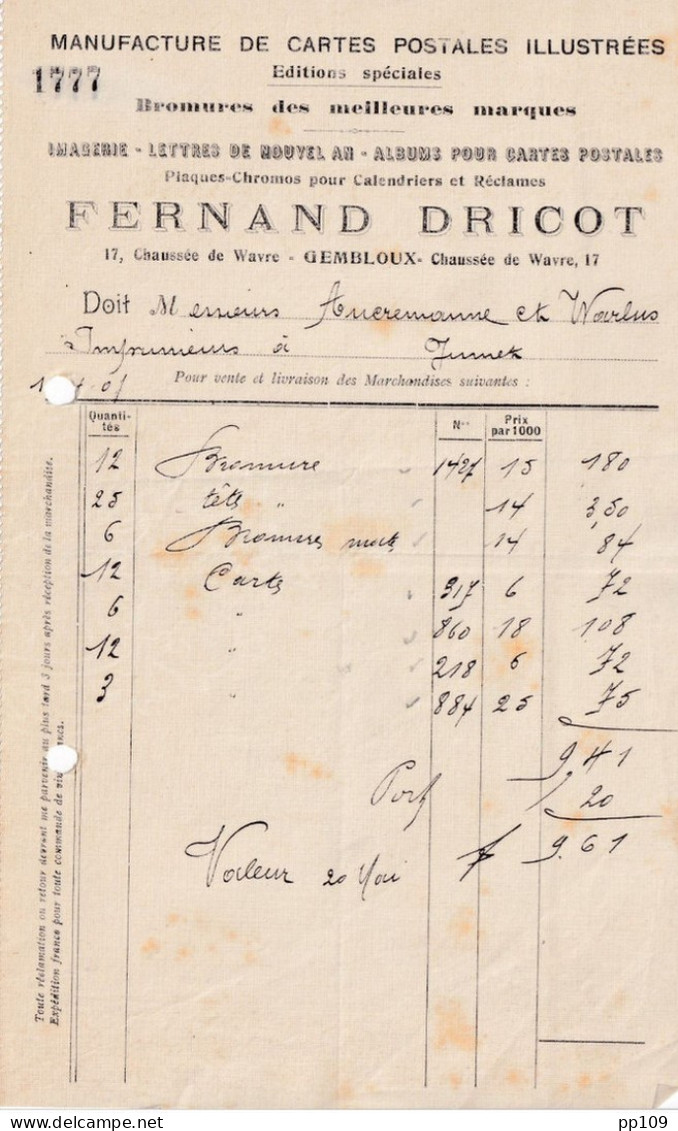 MANUFACTURE DE CARTES POSTALES ILLUSTRÉES
1777
Editions spéciales
Bromures des meilleures marques
IMAGERIE - LETTRES DE NOUVEL AN - ALBUMS POUR CARTES POSTALES
Plaques-Chromos pour Calendriers et Réclames
FERNAND DRICOT
17, Chaussée de Wavre - GEMBLOUX - Chaussée de Wavre, 17
Doit Messieurs Aucremanne et Warlus
Imprimeurs à Jumet
Pour vente et livraison des Marchandises suivantes :
Quanti-tés Nos Prix par 1000
12 Bromure 1427 15 180
25 têtes " 14 3,50
6 Bromures mats 14 84
12 Carte 317 6 72
6 " 860 18 108
12 " 218 6 72
3 " 884 25 75
9 41
Port 20
9.61
Valeur 20 Mai
Toute réclamation ou retour devront me parvenir au plus tard 3 jours après réception de la marchandise.
Expédition franco pour toute commande de
pp109